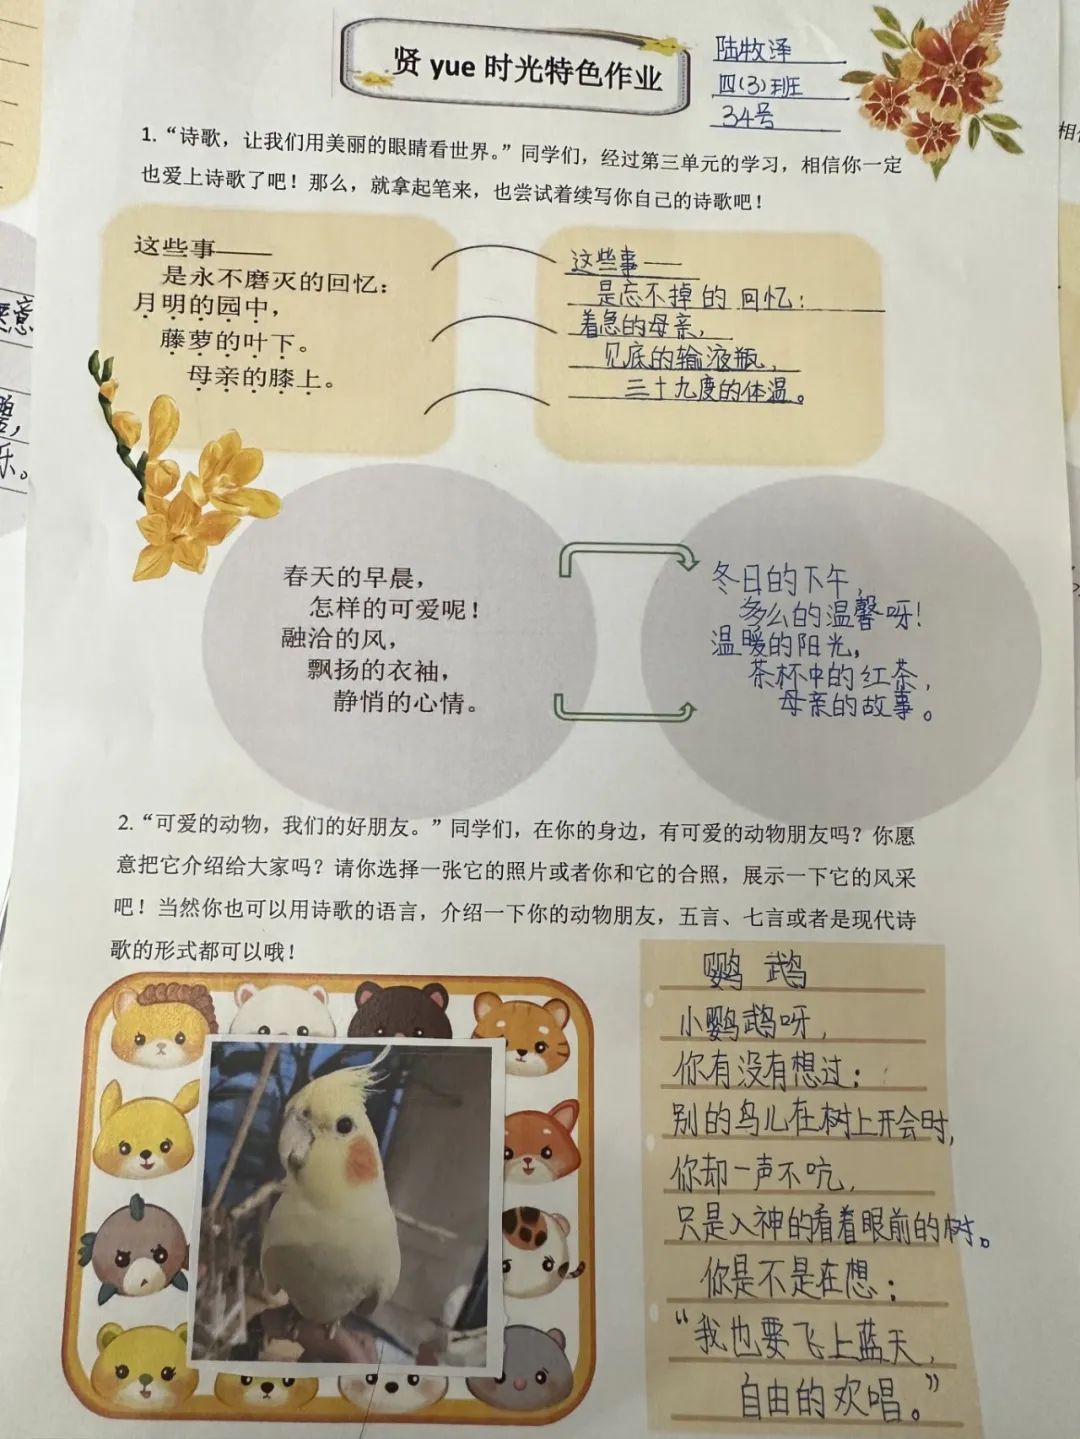 贤 yue 时光特色作业
陆牧泽
四(3)班
34号
1.“诗歌，让我们用美丽的眼睛看世界。”同学们，经过第三单元的学习，相信你一定
也爱上诗歌了吧！那么，就拿起笔来，也尝试着续写你自己的诗歌吧！
这些事——
是永不磨灭的回忆：
月明的园中，
藤萝的叶下。
母亲的膝上。
这些事——
是忘不掉的回忆：
着急的母亲，
见底的输液瓶，
三十九度的体温。
春天的早晨，
怎样的可爱呢！
融洽的风，
飘扬的衣袖，
静悄的心情。
冬日的下午，
多么的温馨呀！
温暖的阳光，
茶杯中的红茶，
母亲的故事。
2.“可爱的动物，我们的好朋友。”同学们，在你的身边，有可爱的动物朋友吗？你愿
意把它介绍给大家吗？请你选择一张它的照片或者你和它的合照，展示一下它的风采
吧！当然你也可以用诗歌的语言，介绍一下你的动物朋友，五言、七言或者是现代诗
歌的形式都可以哦！
鹦鹉
小鹦鹉呀，
你有没有想过：
别的鸟儿在树上开会时，
你却一声不吭，
只是入神的看着眼前的树。
你是不是在想：
“我也要飞上蓝天，
自由的欢唱。”